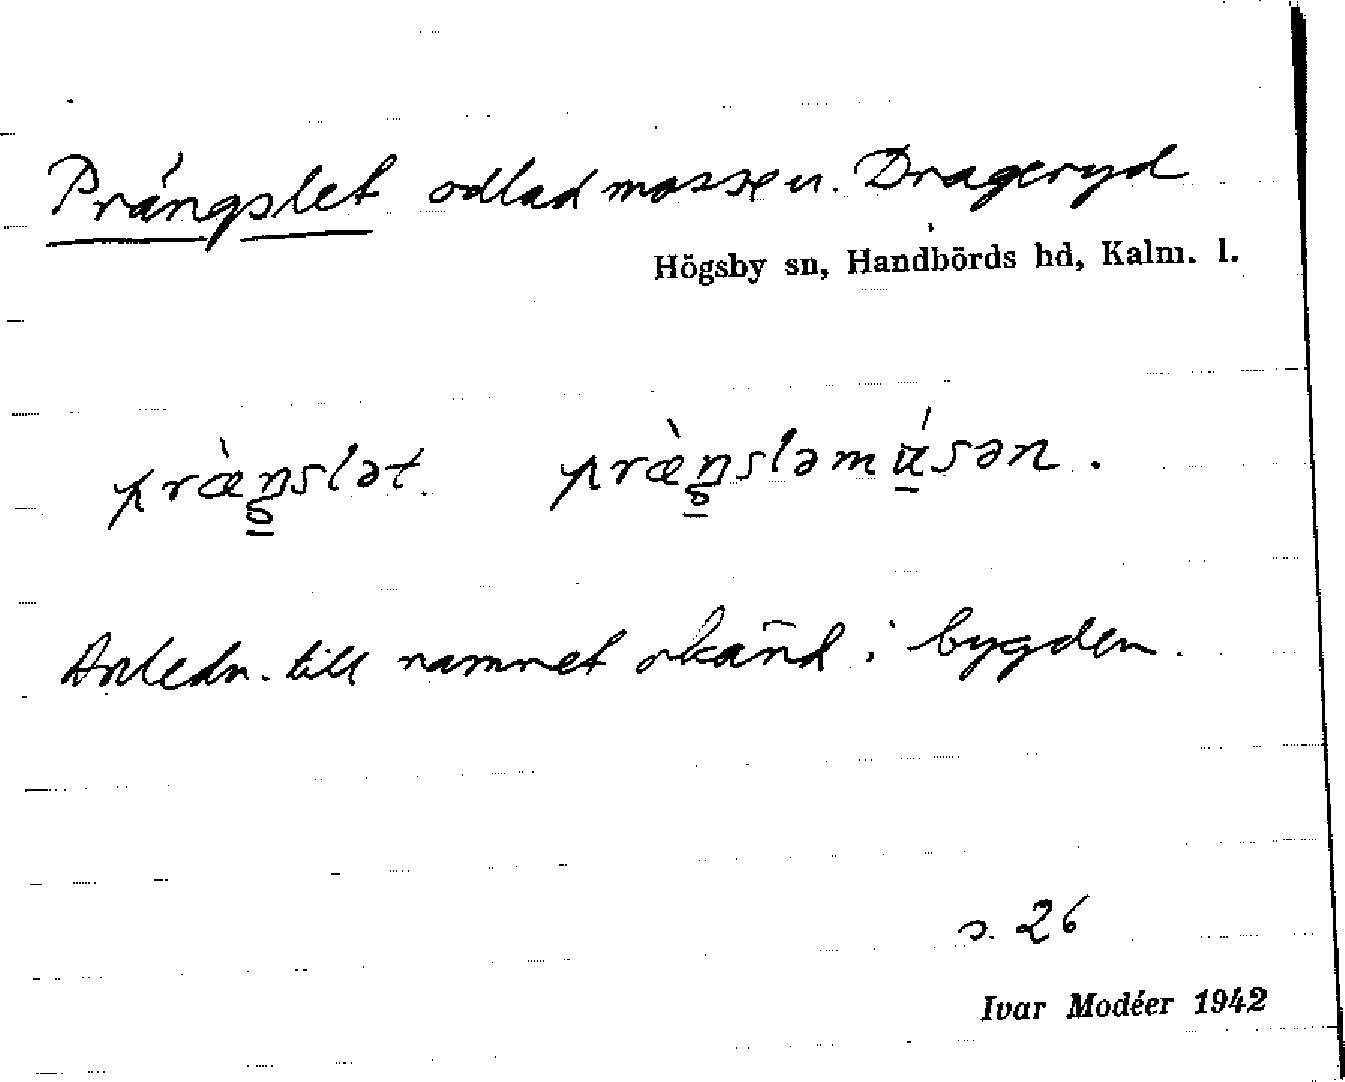 Prängslet odlad mosse u. Drageryd
Högsby sn, Handbörds hd, Kalm. l.
præ̀ŋslət. præ̀ŋsləmúsən.
Anledn. till namnet okänd i bygden.
s. 26
Ivar Modéer 1942